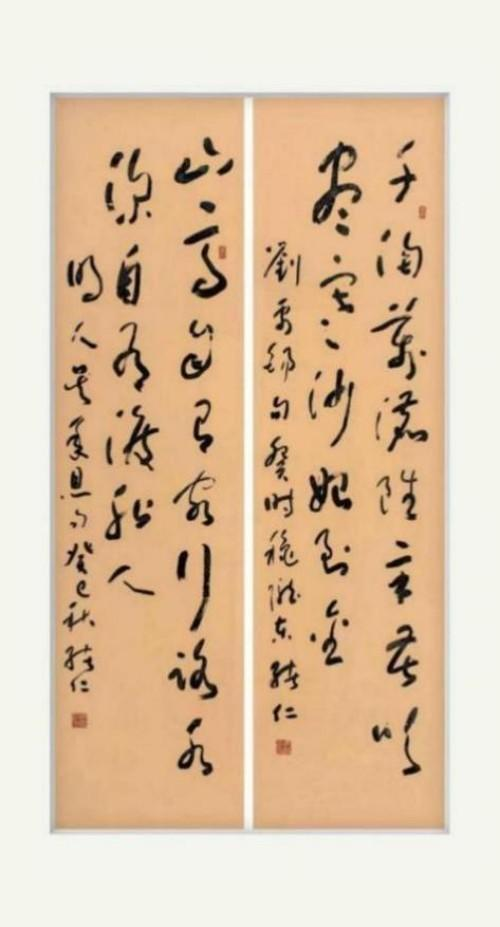 千淘萬漉雖辛苦吹
盡寒沙始到金
劉禹錫句癸時穐隴東仁
山高自有客行路水
深自有渡船人
明人吳承恩句癸巳秋仁